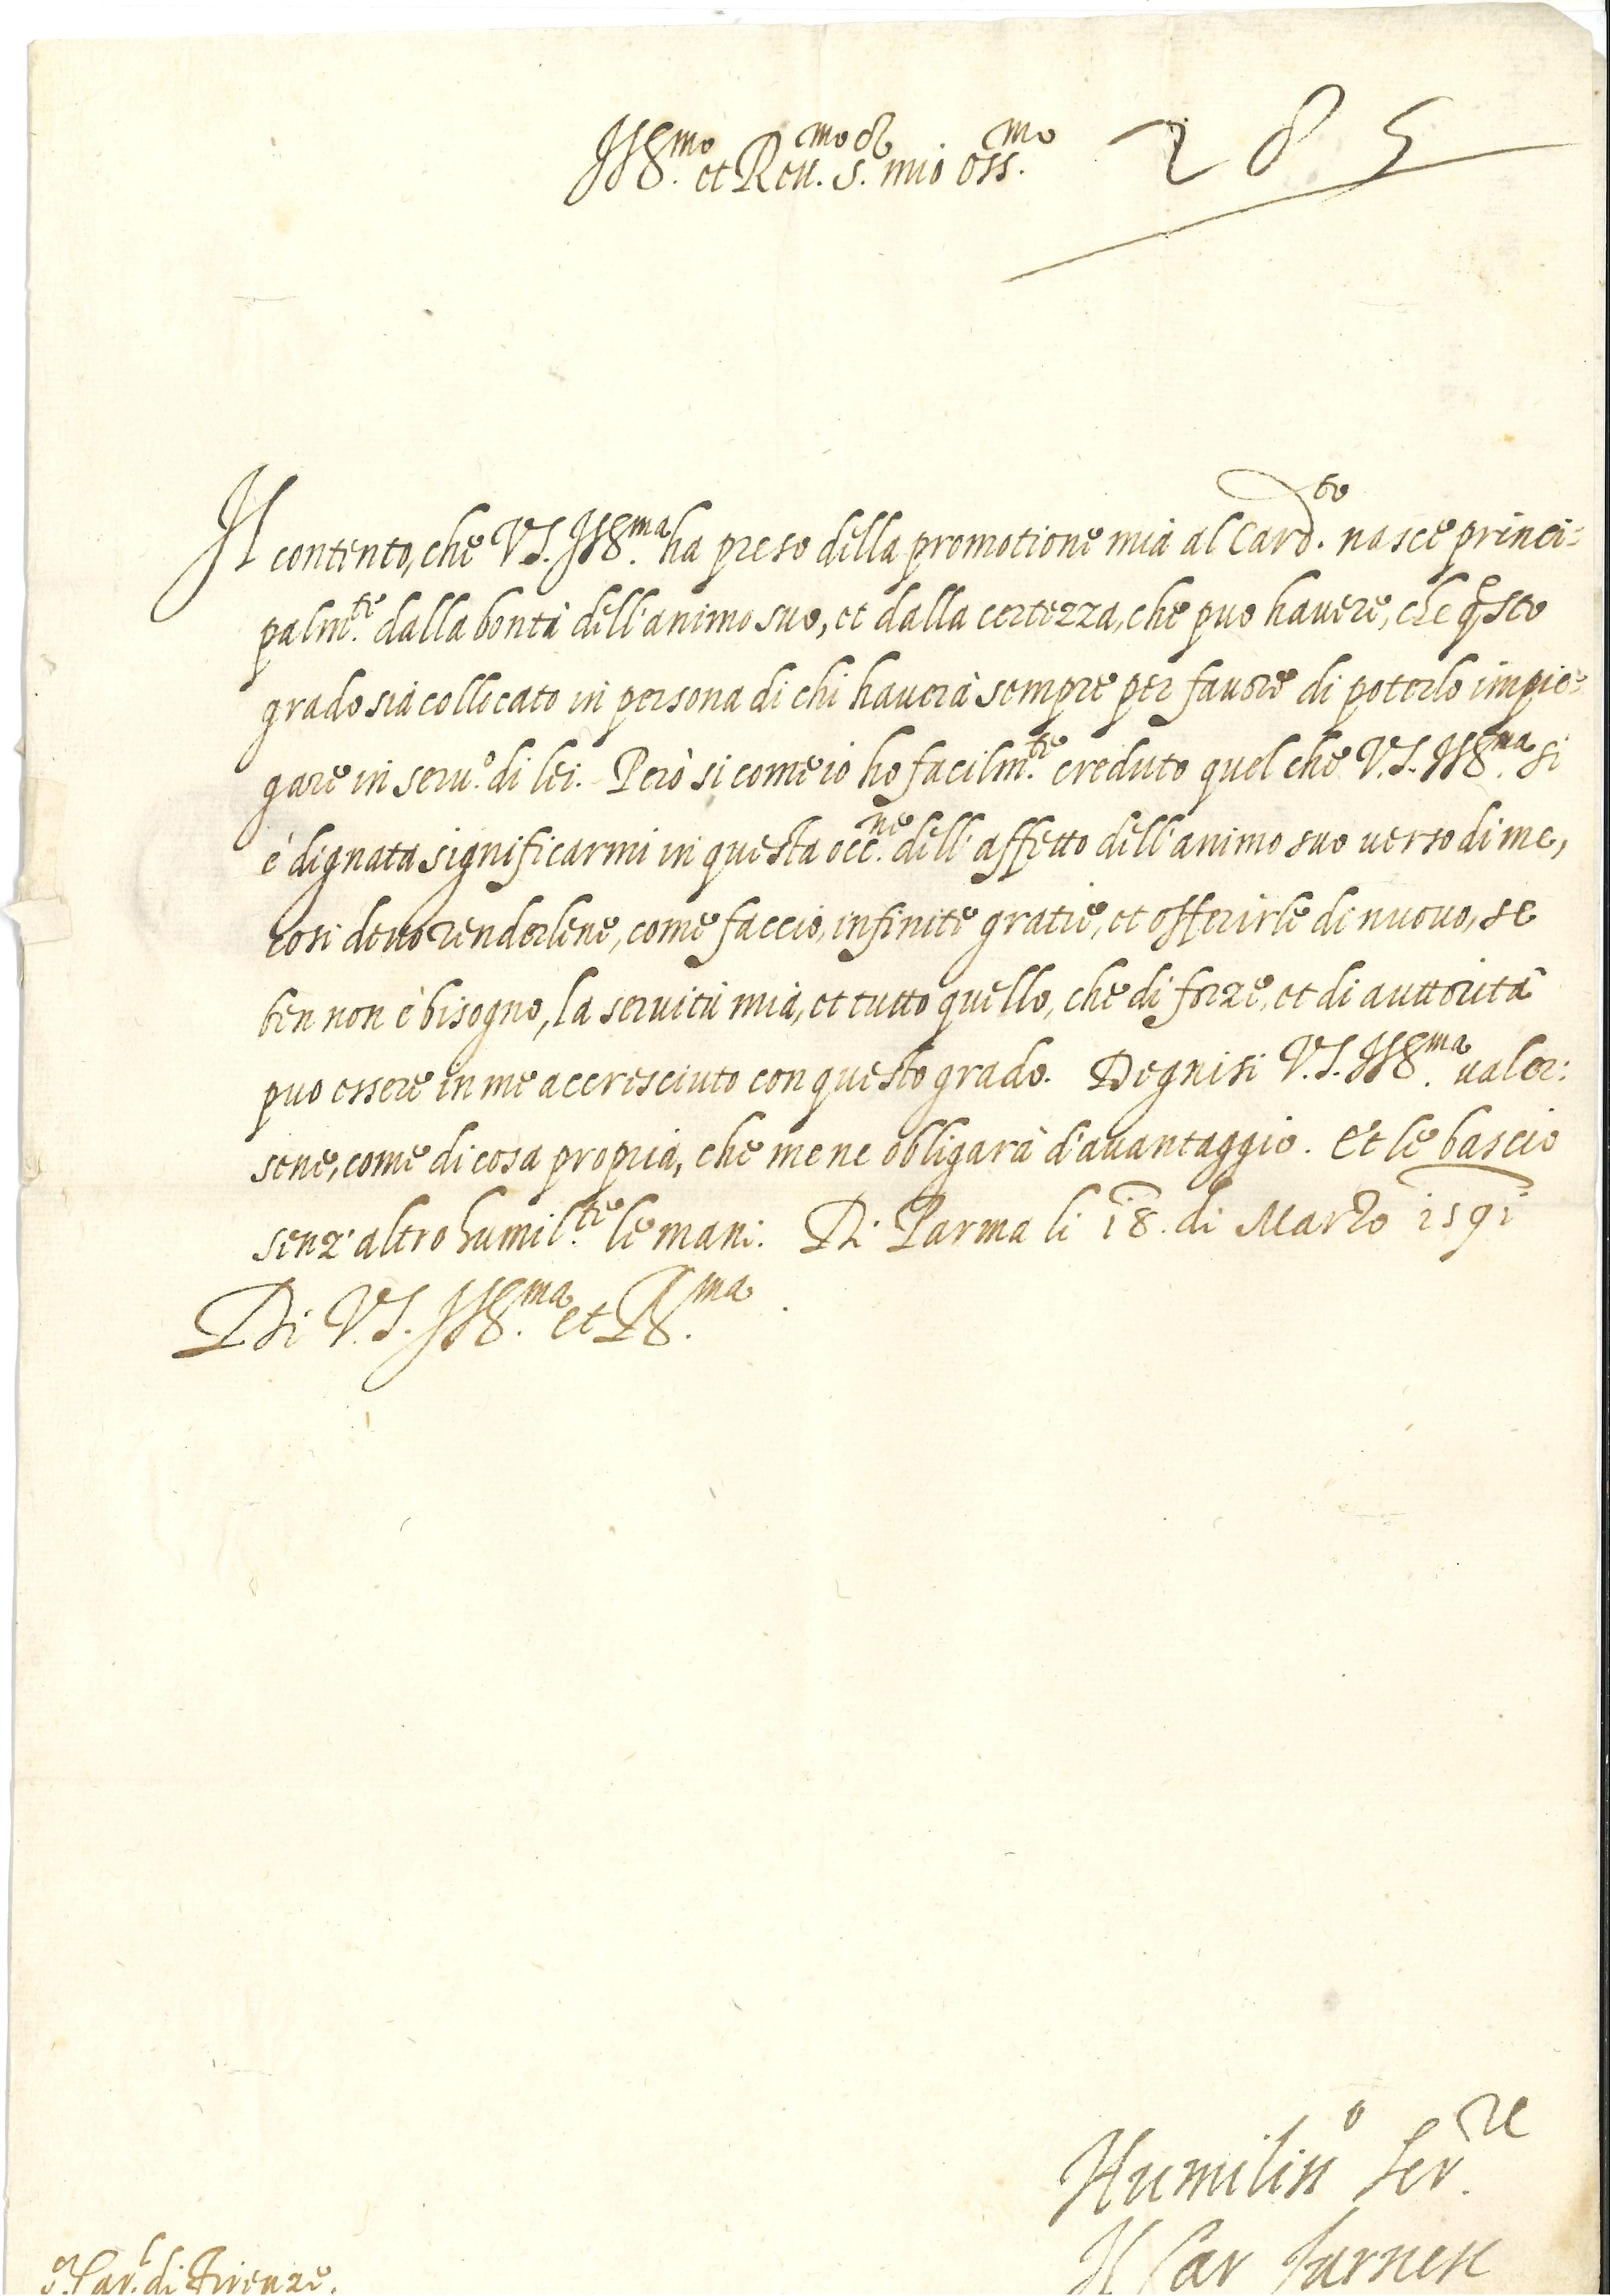 Ill.mo et Reu.mo S.r mio oss.mo 285
Il contento, che V.S. Ill.ma ha preso della promotione mia al Card.to nasce princi=
palm.te dalla bontà dell'animo suo, et dalla certezza, che puo hauere, che q̃sto
grado sia collocato in persona di chi hauerà sempre per fauore di poterlo impie=
gare in seru.o di lei. Però si come io ho facilm.te creduto quel che V.S. Ill.ma si
è dignata significarmi in questa occ.ne dell'affetto dell'animo suo uerso di me,
cosi deuo renderlene, come faccio, infinite gratie, et offerirle di nuouo, se
ben non è bisogno, la seruitù mia, et tutto quello, che di forze, et di auttorità
puo essere in me accresciuto con questo grado. Degnisi V.S. Ill.ma ualer=
sene, come di cosa propria, che me ne obligarà d'auantaggio. Et le bascio
senz'altro humil.te le mani. Di Parma li i8. di Marzo i59i
Di V.S. Ill.ma et R.ma
Humiliss.o Ser.re
Il Car Farnese
S.r Car.l di Firenze.